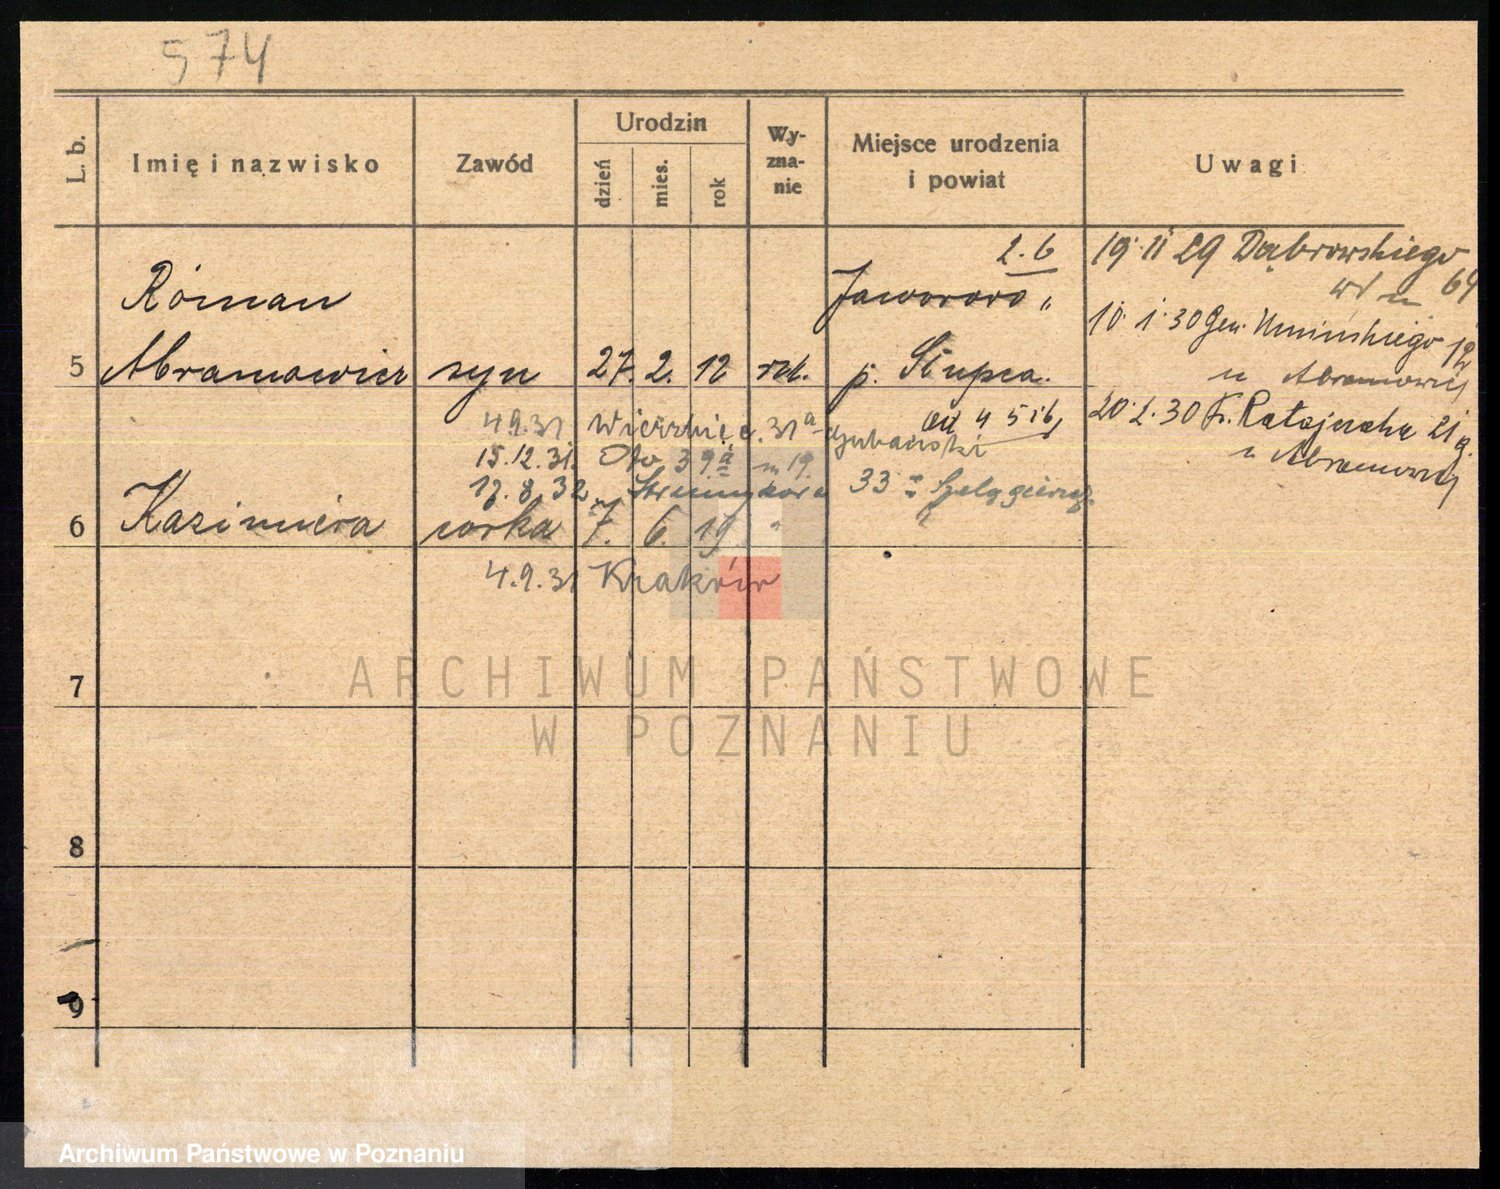 574
L. b.
Imię i nazwisko
Zawód
Urodzin
dzień
mies.
rok
Wy-
zna-
nie
Miejsce urodzenia
i powiat
Uwagi
2.6
19 11 29 Dąbrowskiego
64
Roman
Jaworowo
10 1 30 Gen. Umińskiego 12
u Abramowicz
5 Abramowicz syn 27. 2. 12 rk. p. Słupca.
4.9.31 Wierzbięc. 31a
20 2. 30 Fr. Ratajczaka 21
u Abramowicz
15.12.31. 39a m 19.
17.8.32 33
6 Kazimiera corka 7. 6. 19 "
4.9.31 Kraków
7
8
9
ARCHIWUM PAŃSTWOWE
W POZNANIU
Archiwum Państwowe w Poznaniu